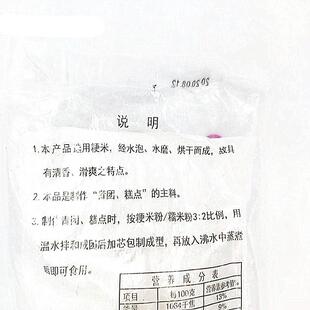 20200812
说 明
1.本产品选用粳米,经水泡、水磨、烘干而成,故具
有清香、滑爽之特点。
2.本品是制作“青团、糕点”的主料。
3.制作青团、糕点时,按粳米粉/糯米粉3:2比例,用
温水拌和成团后加芯包制成型,再放入沸水中蒸煮
即可食用。
营养成分表
项目 每100克 营养素参考值%
能量 1664千焦 13%
9%